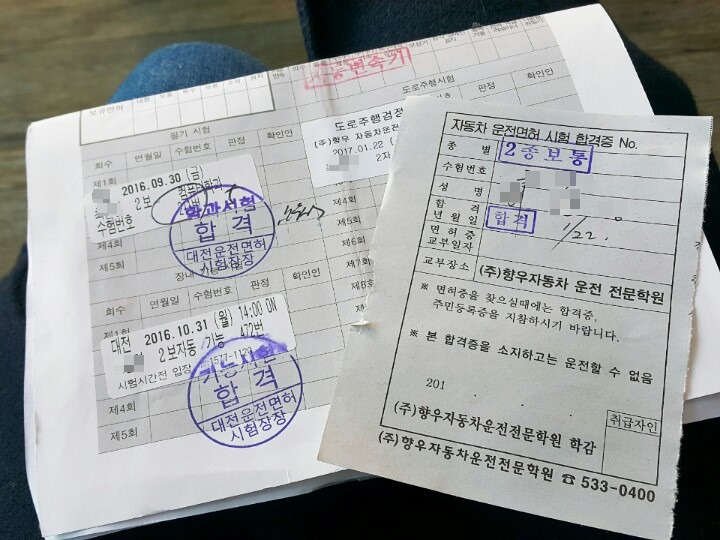 자동변속기
필기 시험
도로주행시험
회수 연월일 수험번호 판정 확인인
판정 확인인
제1회
2016.09.30 (금)
2보 컴퓨터학과
수험번호
학과시험
합격
대전운전면허
시험장장
제4회
제5회
도로주행검정
(주)향우 자동차운전
2017.01.22
2자
제4회
제5회
제6회
제7회
제8회
장내 기능 시험
회수 연월일 수험번호 판정 확인인
제1회
2016.10.31 (월) 14:00 ON
대전 2보자동 기능 472번
시험시간전 입장 1577-1120
기능시험
합격
대전운전면허
시험장장
제4회
제5회
자동차 운전면허 시험 합격증 No.
종별 2종보통
수험번호
성명
합격
년월일 합격 1/22.
면허증
교부일자
교부장소 (주)향우자동차 운전 전문학원
※ 면허증을 찾으실때에는 합격증,
주민등록증을 지참하시기 바랍니다.
※ 본 합격증을 소지하고는 운전할 수 없음
201 . . .
취급자인
(주)향우자동차운전전문학원 학감
(주)향우자동차운전전문학원 ☎ 533-0400